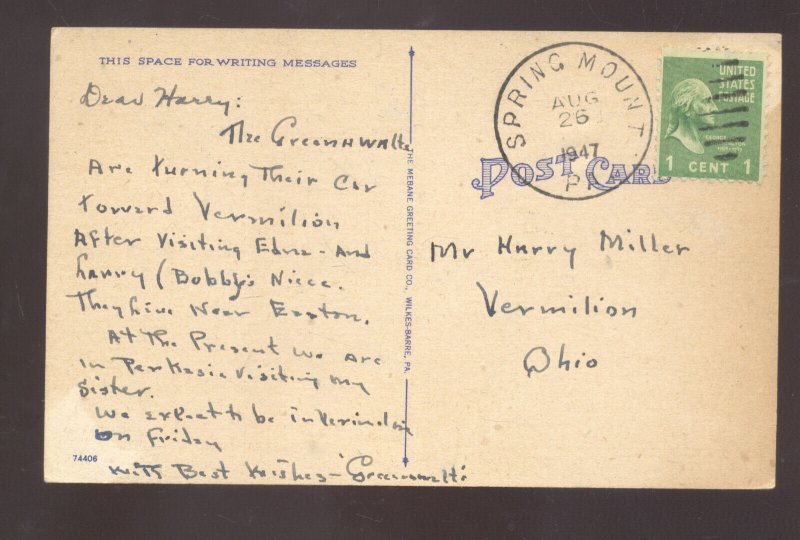 THIS SPACE FOR WRITING MESSAGES
Dear Harry:
The Greenawalts
Are turning Their Car
toward Vermilion
After Visiting Edna - And
Larry (Bobby's Niece.
They Live Near Easton.
At The Present We Are
in Perkasie Visiting my
Sister.
We expect to be in Vermilion
on Friday
With Best Wishes - Greenawalts
74406
THE MEBANE GREETING CARD CO., WILKES-BARRE, PA.
SPRING MOUNT
AUG
26
1947
PA
UNITED
STATES
POSTAGE
1 CENT 1
POST CARD
Mr Harry Miller
Vermilion
Ohio